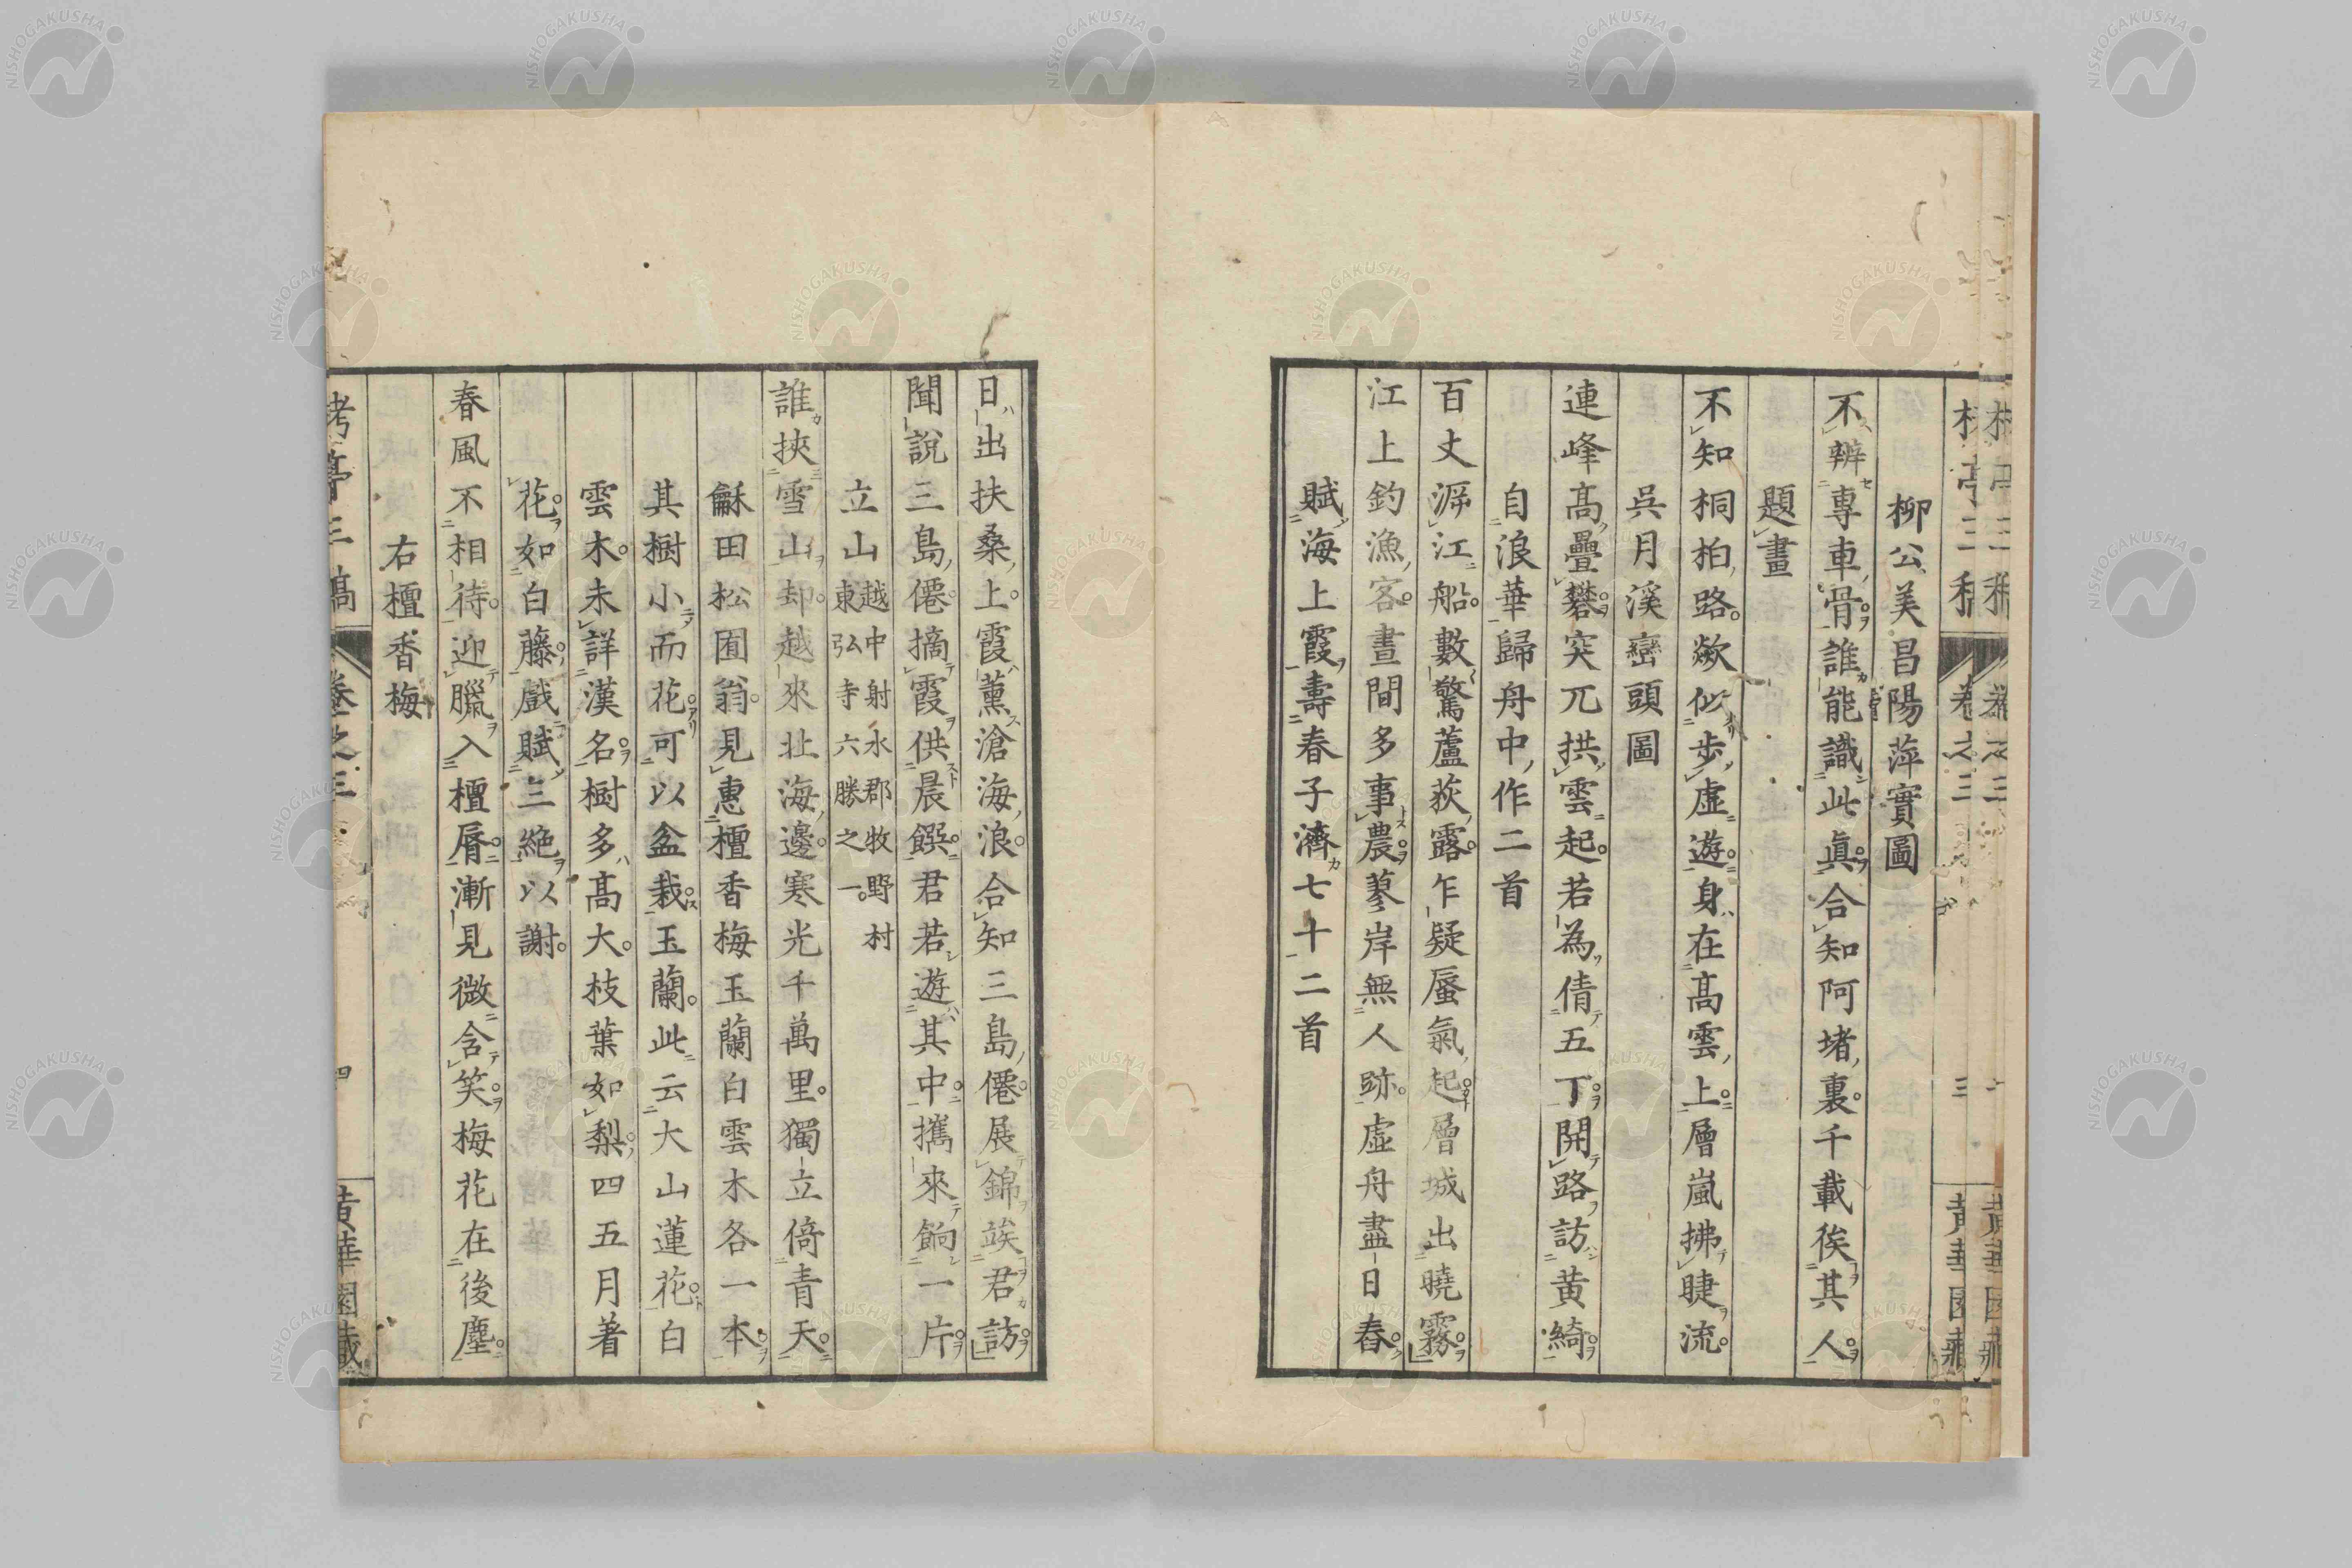 柳公美昌陽萍實圖
不辨專車骨誰能識此真合知阿堵裏千載俟其人
題畫
不知桐柏路歘似步虛遊身在高雲上層嵐拂睫流
吳月溪巒頭圖
連峰高疊礬突兀拱雲起若為倩五丁開路訪黄綺
自浪華歸舟中作二首
百丈泝江船數驚蘆荻露乍疑蜃氣起層城出曉霧
江上釣漁客晝間多事農蓼岸無人跡虛舟盡日舂
賦海上霞壽春子濟七十二首
日出扶桑上霞薰滄海浪合知三島僊展錦竢君訪
聞說三島僊摘霞供晨饌君若遊其中攜來餉一片
立山越中射水郡牧野村
東弘寺六勝之一
誰挾雪山却越來北海邊寒光千萬里獨立倚青天
龢田松囿翁見惠檀香梅玉蘭白雲木各一本
其樹小而花可以盆栽玉蘭此云大山蓮花白
雲木未詳漢名樹多高大枝葉如梨四五月著
花如白藤戲賦三絶以謝
春風不相待迎臘入檀脣漸見微含笑梅花在後塵
右檀香梅
卷之三
四
NISHOGAKUSHA